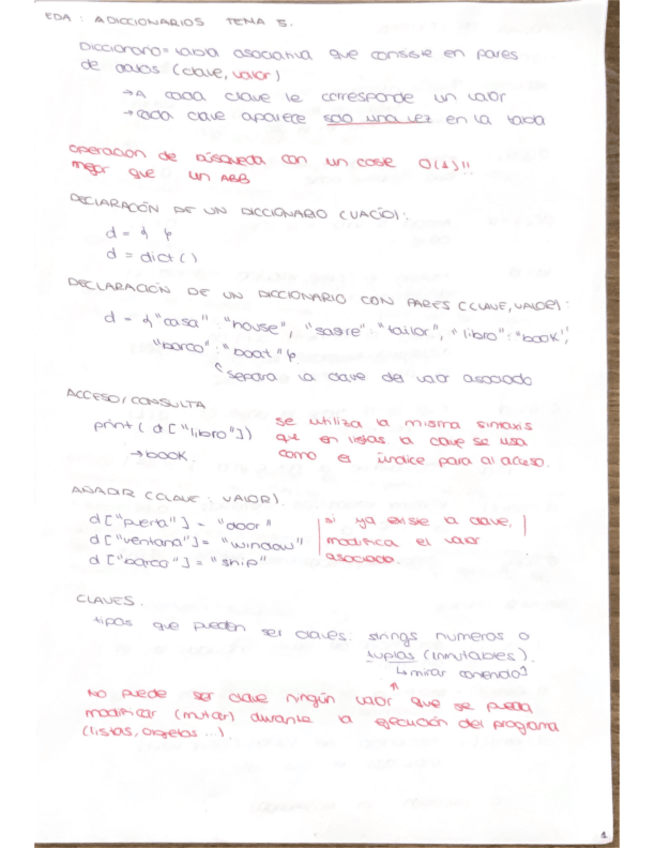 EDA : ADICCIONARIOS TEMA 5.
Diccionario = tabla asociativa que consiste en pares
de datos (clave, valor)
→ A cada clave le corresponde un valor
→ cada clave aparece solo una vez en la tabla
operación de búsqueda con un coste O(1)!!
mejor que un ABB
DECLARACIÓN DE UN DICCIONARIO (VACÍO):
d = { }
d = dict ( )
DECLARACIÓN DE UN DICCIONARIO CON PARES (CLAVE, VALOR):
d = {"casa" : "house", "sastre" : "tailor", "libro" : "book",
"barco" : "boat"}
separa la clave del valor asociado
ACCESO / CONSULTA
print ( d ["libro"])
→ book.
se utiliza la misma sintaxis
que en listas la clave se usa
como el índice para al acceso.
AÑADIR (CLAVE : VALOR).
d ["puerta"] = "door"
d ["ventana"] = "window"
d ["barco"] = "ship"
si ya existe la clave,
modifica el valor
asociado
CLAVES.
tipos que pueden ser claves: strings numeros o
tuplas (inmutables).
↳ mirar contenido]
No puede ser clave ningún valor que se pueda
modificar (mutar) durante la ejecución del programa
(listas, objetos ...).
1